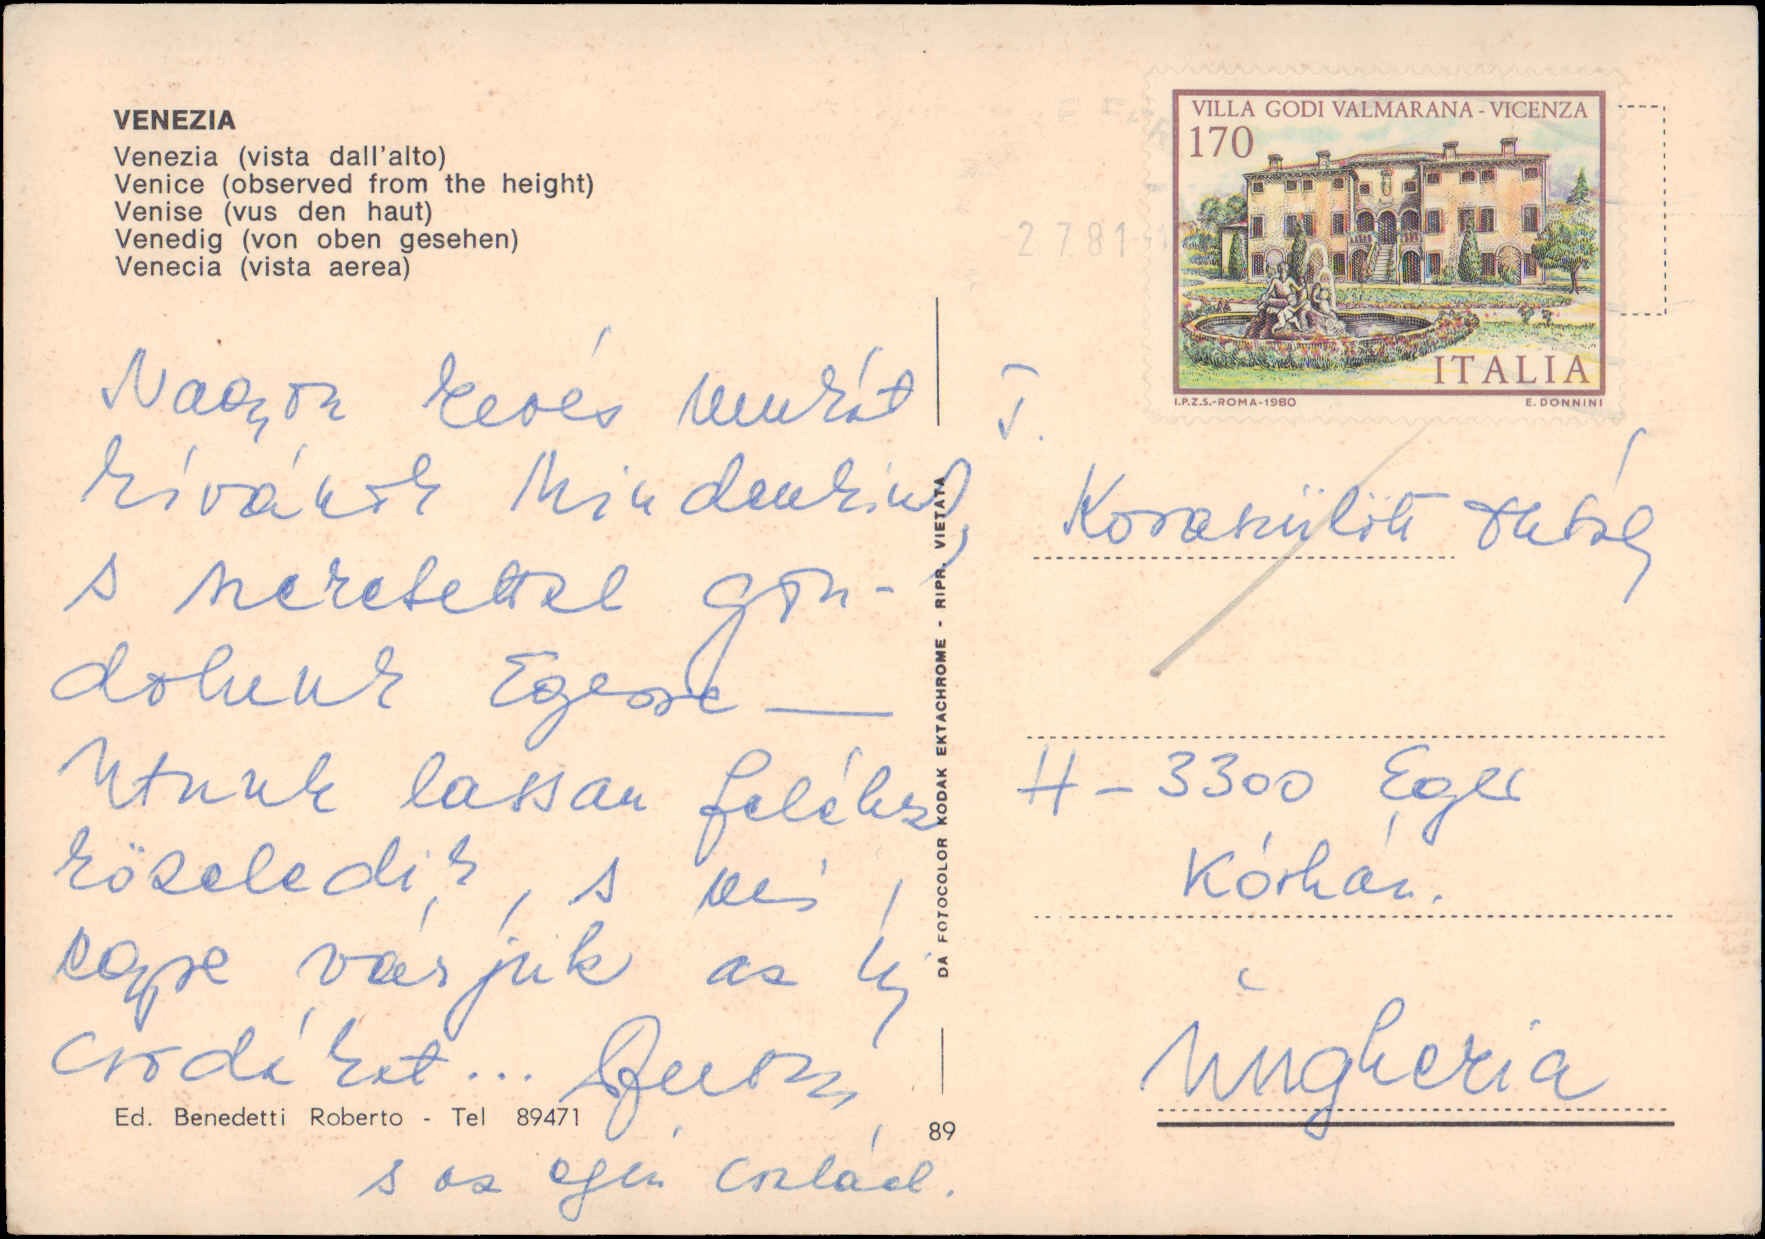 VENEZIA
Venezia (vista dall'alto)
Venice (observed from the height)
Venise (vus den haut)
Venedig (von oben gesehen)
Venecia (vista aerea)
VILLA GODI VALMARANA - VICENZA
170
ITALIA
I.P.Z.S.-ROMA-1980 E. DONNINI
2 7 81
Nagyon kevés munkát
kívánok Mindenkinek,
s szeretettel gon-
dolunk Egerre —
Utunk lassan feléhez
közeledik, s mi
egyre várjuk az új
csodákat...
s az egész család.
T.
Koraszülött osztály
H - 3300 Eger
Kórház.
Ungheria
DA FOTOCOLOR KODAK EKTACHROME - RIPR. VIETATA
Ed. Benedetti Roberto - Tel 89471
89